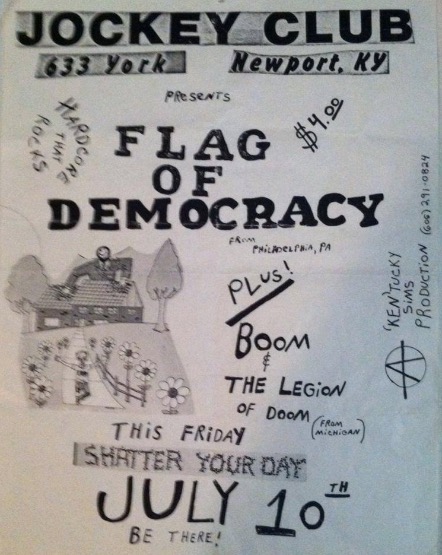 JOCKEY CLUB
633 York
Newport, KY
PRESENTS
HARDCORE
THAT
ROCKS
$4.00
FLAG
OF
DEMOCRACY
FROM
PHILADELPHIA, PA
PLUS!
BOOM
&
THE LEGION
OF DOOM
(FROM
MICHIGAN)
'KENTUCKY
SIMS
PRODUCTION (606) 291-0824
THIS FRIDAY
SHATTER YOUR DAY
JULY 10TH
BE THERE!